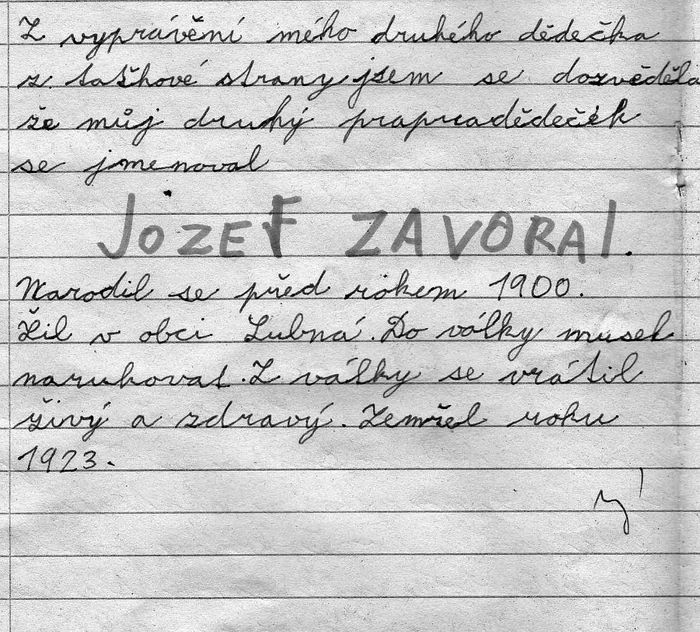 Z vyprávění mého druhého dědečka
z taťkové strany jsem se dozvěděla
že můj druhý prapradědeček
se jmenoval
JOZEF ZAVORAL.
Narodil se před rokem 1900.
Žil v obci Lubná. Do války musel
narukovat. Z války se vrátil
živý a zdravý. Zemřel roku
1923.